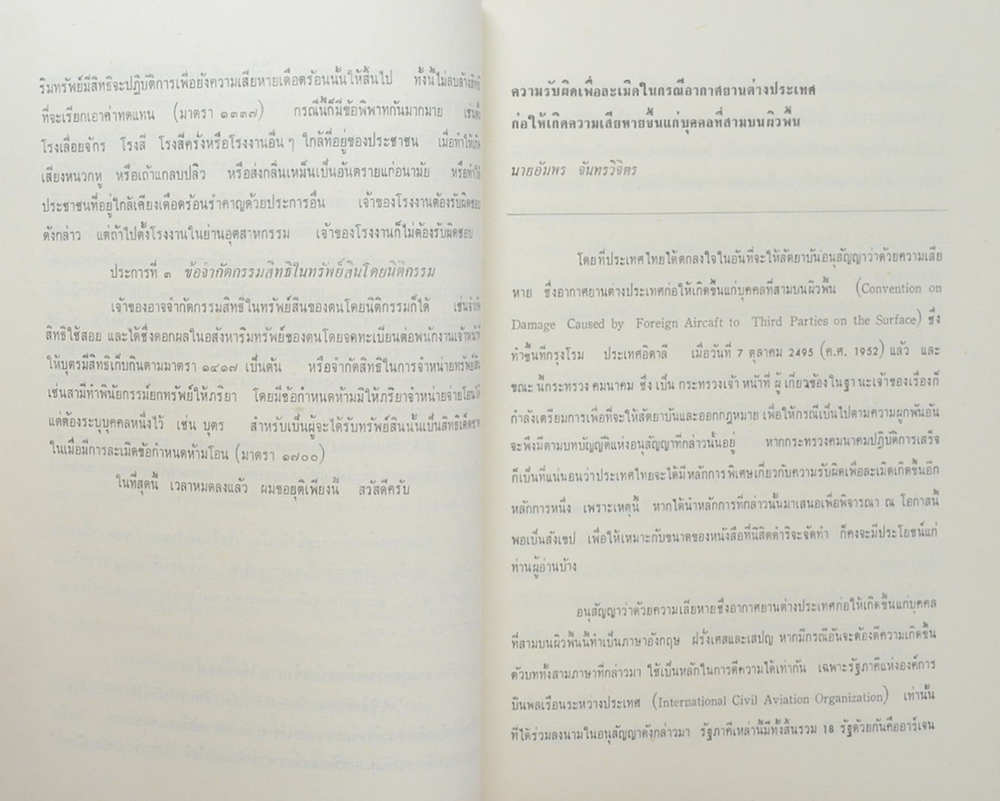 ริมทรัพย์มีสิทธิจะปฏิบัติการเพื่อยังความเสียหายเดือดร้อนนั้นให้สิ้นไป ทั้งนี้ไม่ลบล้างสิทธิ
ที่จะเรียกเอาค่าทดแทน (มาตรา ๑๓๓๗) กรณีนี้ก็มีข้อพิพาทกันมากมาย เช่นตั้ง
โรงเลื่อยจักร โรงสี โรงสีครั่งหรือโรงงานอื่น ๆ ใกล้ที่อยู่ของประชาชน เมื่อทำให้เกิด
เสียงหนวกหู หรือเถ้าแกลบปลิว หรือส่งกลิ่นเหม็นเป็นอันตรายแก่อนามัย หรือทำให้
ประชาชนที่อยู่ใกล้เคียงเดือดร้อนรำคาญด้วยประการอื่น เจ้าของโรงงานต้องรับผิดชอบ
ดังกล่าว แต่ถ้าไปตั้งโรงงานในย่านอุตสาหกรรม เจ้าของโรงงานก็ไม่ต้องรับผิดชอบ
ประการที่ ๓ ข้อจำกัดกรรมสิทธิในทรัพย์สินโดยนิติกรรม
เจ้าของอาจจำกัดกรรมสิทธิในทรัพย์สินของตนโดยนิติกรรมก็ได้ เช่นจำกัด
สิทธิใช้สอย และได้ซึ่งดอกผลในอสังหาริมทรัพย์ของตนโดยจดทะเบียนต่อพนักงานเจ้าหน้าที่
ให้บุตรมีสิทธิเก็บกินตามมาตรา ๑๔๑๗ เป็นต้น หรือจำกัดสิทธิในการจำหน่ายทรัพย์สิน
เช่นสามีทำพินัยกรรม์ยกทรัพย์ให้ภริยา โดยมีข้อกำหนดห้ามมิให้ภริยาจำหน่ายจ่ายโอนได้
แต่ต้องระบุบุคคลหนึ่งไว้ เช่น บุตร สำหรับเป็นผู้จะได้รับทรัพย์สินนั้นเป็นสิทธิเด็ดขาด
ในเมื่อมีการละเมิดข้อกำหนดห้ามโอน (มาตรา ๑๗๐๐)
ในที่สุดนี้ เวลาหมดลงแล้ว ผมขอยุติเพียงนี้ สวัสดีครับ
ความรับผิดเพื่อละเมิดในกรณีอากาศยานต่างประเทศ
ก่อให้เกิดความเสียหายขึ้นแก่บุคคลที่สามบนผิวพื้น
นายอัมพร จันทรวิจิตร
โดยที่ประเทศไทยได้ตกลงใจในอันที่จะให้สัตยาบันอนุสัญญาว่าด้วยความเสีย
หาย ซึ่งอากาศยานต่างประเทศก่อให้เกิดขึ้นแก่บุคคลที่สามบนผิวพื้น (Convention on
Damage Caused by Foreign Aircaft to Third Parties on the Surface) ซึ่ง
ทำขึ้นที่กรุงโรม ประเทศอิตาลี เมื่อวันที่ 7 ตุลาคม 2495 (ค.ศ. 1952) แล้ว และ
ขณะ นี้ กระทรวง คมนาคม ซึ่ง เป็น กระทรวงเจ้า หน้าที่ ผู้ เกี่ยวข้อง ในฐา นะเจ้าของเรื่องก็
กำลังเตรียมการเพื่อที่จะให้สัตยาบันและออกกฎหมาย เพื่อให้กรณีเป็นไปตามความผูกพันอัน
จะพึงมีตามบทบัญญัติแห่งอนุสัญญาที่กล่าวนั้นอยู่ หากกระทรวงคมนาคมปฏิบัติการเสร็จ
ก็เป็นที่แน่นอนว่าประเทศไทยจะได้มีหลักการพิเศษเกี่ยวกับความรับผิดเพื่อละเมิดเกิดขึ้นอีก
หลักการหนึ่ง เพราะเหตุนี้ หากได้นำหลักการที่กล่าวนั้นมาเสนอเพื่อพิจารณา ณ โอกาสนี้
พอเป็นสังเขป เพื่อให้เหมาะกับขนาดของหนังสือที่นิสิตดำริจะจัดทำ ก็คงจะมีประโยชน์แก่
ท่านผู้อ่านบ้าง
อนุสัญญาว่าด้วยความเสียหายซึ่งอากาศยานต่างประเทศก่อให้เกิดขึ้นแก่บุคคล
ที่สามบนผิวพื้นนี้ทำเป็นภาษาอังกฤษ ฝรั่งเศสและเสปญ หากมีกรณีอันจะต้องตีความเกิดขึ้น
ตัวบททั้งสามภาษาที่กล่าวมา ใช้เป็นหลักในการตีความได้เท่ากัน เฉพาะรัฐภาคีแห่งองค์การ
บินพลเรือนระหว่างประเทศ (International Civil Aviation Organization) เท่านั้น
ที่ได้ร่วมลงนามในอนุสัญญาดังกล่าวมา รัฐภาคีเหล่านี้มีทั้งสิ้นรวม 18 รัฐด้วยกันคืออาร์เจน